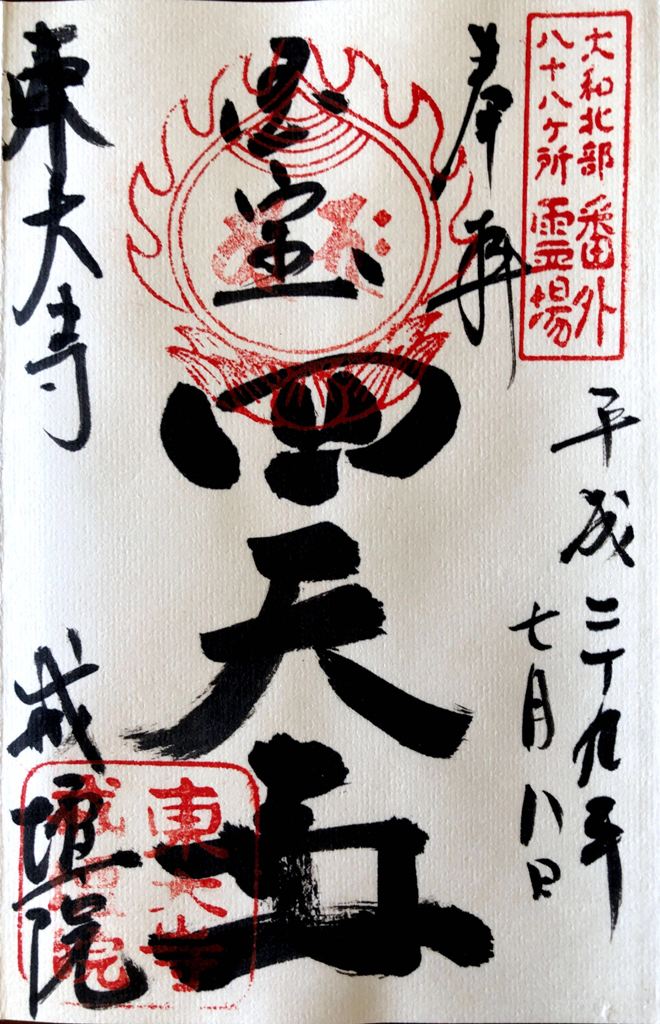 大和北部
八十八ケ所
番外
霊場
奉拝
平成二十九年
七月八日
四天王
東大寺
戒壇院
東大寺
戒壇院